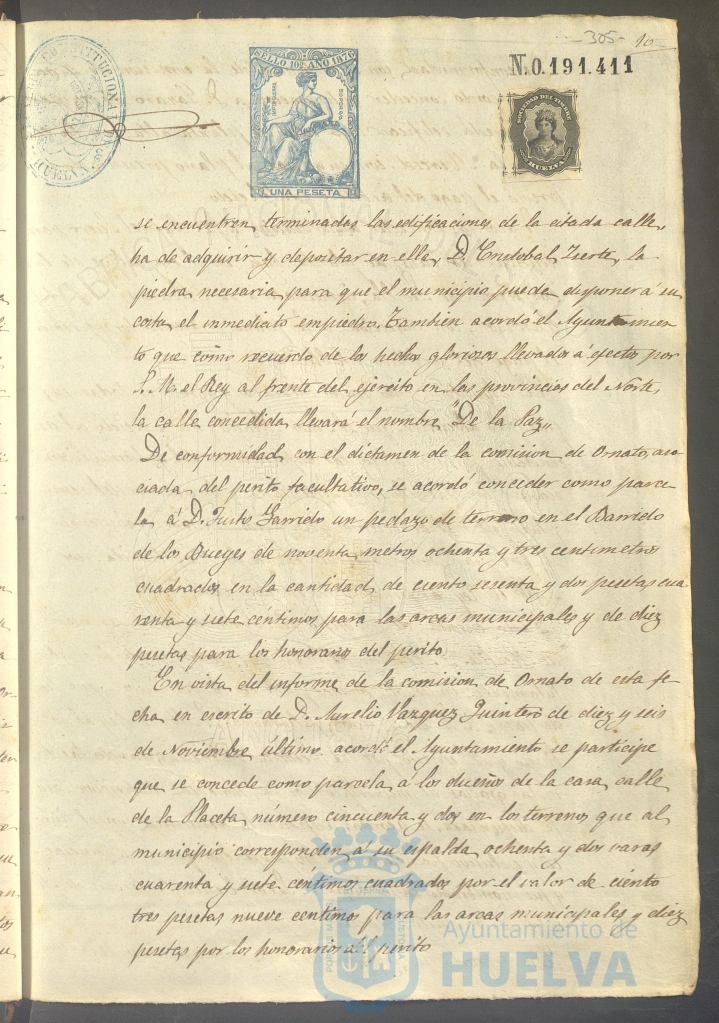 305 10
N.0.191.411
SELLO 10º AÑO 1876
UNA PESETA
SOCIEDAD DEL TIMBRE
HUELVA
CONSTITUCIONAL
HUELVA
se encuentren terminadas las edificaciones de la citada calle,
ha de adquirir y depositar en ella, D. Cristobal Iserte, la
piedra necesaria para que el municipio pueda disponer á su
costa el inmediato empiedro. Tambien acordó el Ayuntamien
to que como recuerdo de los hechos gloriosos llevados á efectos por
S. M. el Rey al frente del ejercito en las provincias del Norte,
la calle concedida llevará el nombre "De la Paz„
De conformidad con el dictamen de la comision de Ornato, aso
ciada del perito facultativo, se acordó conceder como parce
la á D. Justo Garrido un pedazo de terreno en el Barrido
de los Bueyes de noventa metros ochenta y tres centimetros
cuadrados en la cantidad de ciento sesenta y dos pesetas cua
renta y siete céntimos para las arcas municipales y de diez
pesetas para los honorarios del perito
En vista del informe de la comision de Ornato de esta fe
cha en escrito de D. Aurelio Vazquez Quintero de diez y seis
de Noviembre último acordó el Ayuntamiento se participe
que se concede como parcela á los dueños de la casa calle
de la Placeta número cincuenta y dos en los terrenos que al
municipio corresponden á su espalda ochenta y dos varas
cuarenta y siete céntimos cuadrados por el valor de ciento
tres pesetas nueve centimos para las arcas municipales y diez
pesetas por los honorarios al perito
Ayuntamiento de
HUELVA